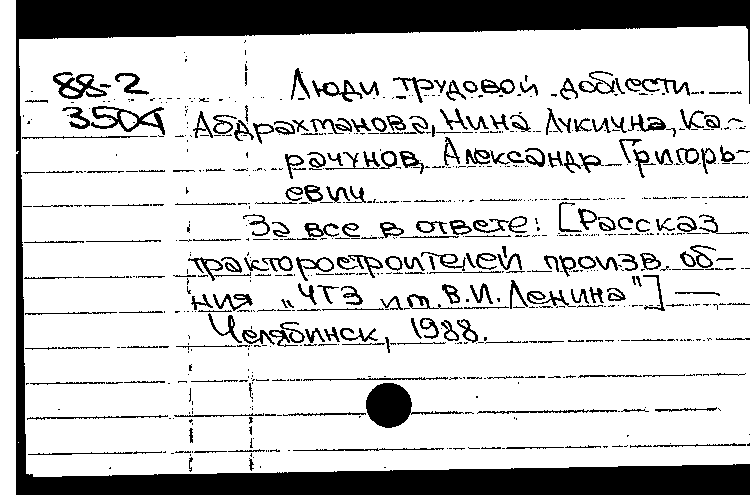 88-2 Люди трудовой доблести
3504 Абдрахманова, Нина Лукична, Ка-
рачунов, Александр Григорь-
евич
За все в ответе: [Рассказ
тракторостроителей произв. об-
ния „ЧТЗ им. В.И. Ленина"] —
Челябинск, 1988.